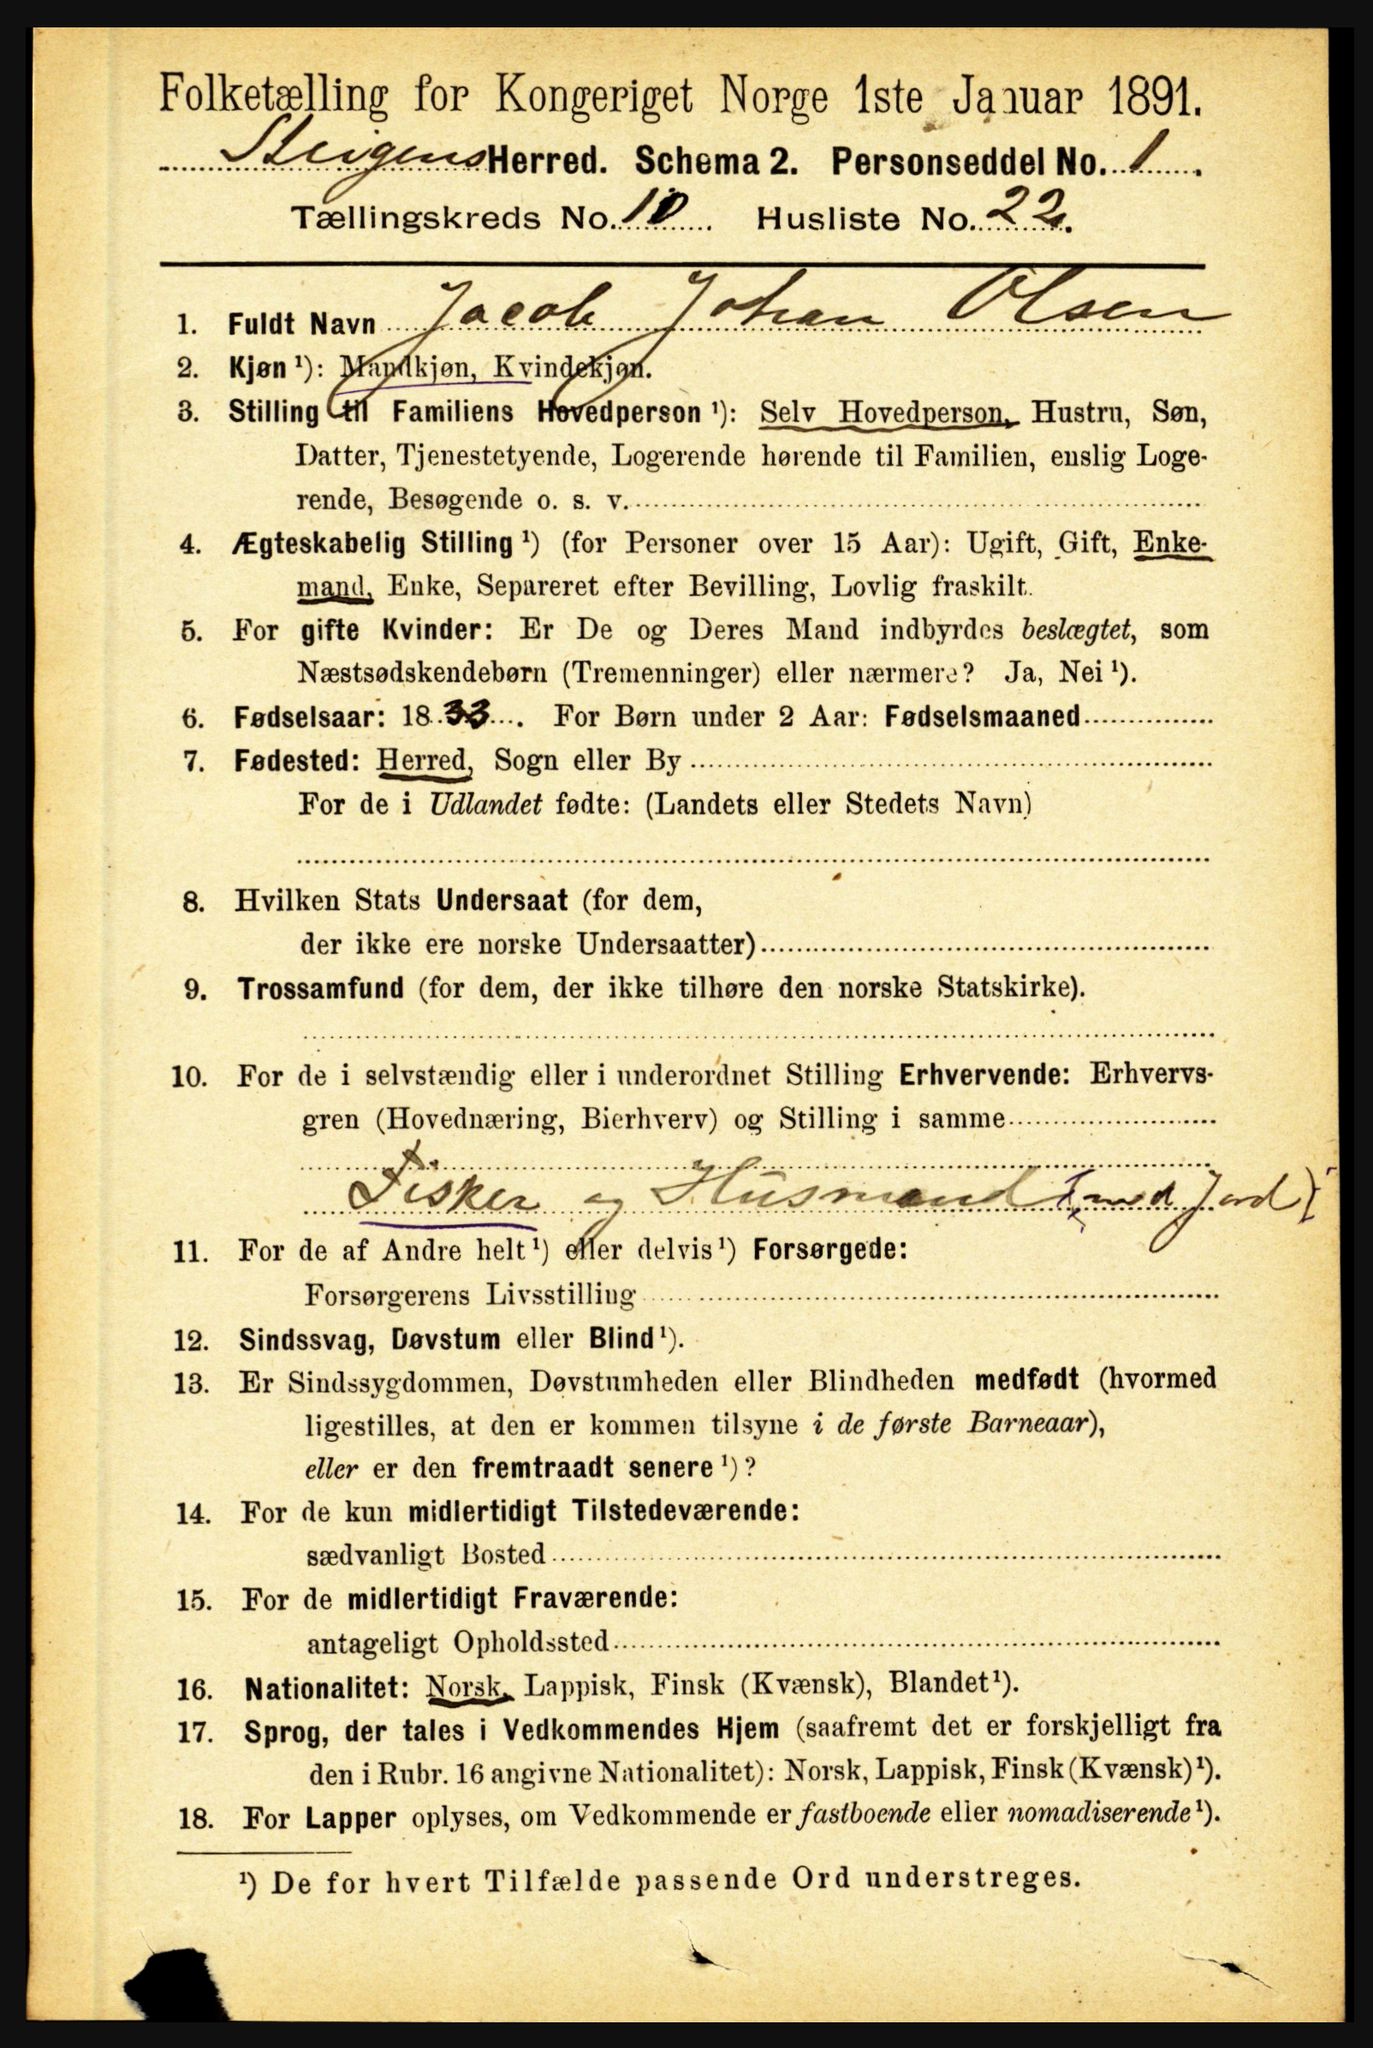 Folketælling for Kongeriget Norge 1ste Januar 1891.
Steigens Herred. Schema 2. Personseddel No. 1.
Tællingskreds No. 10. Husliste No. 22.
1. Fuldt Navn Jacob Johan Olsen
2. Kjøn ¹): Mandkjøn, Kvindekjøn.
3. Stilling til Familiens Hovedperson ¹): Selv Hovedperson, Hustru, Søn,
Datter, Tjenestetyende, Logerende hørende til Familien, enslig Loge-
rende, Besøgende o. s. v.
4. Ægteskabelig Stilling ¹) (for Personer over 15 Aar): Ugift, Gift, Enke-
mand, Enke, Separeret efter Bevilling, Lovlig fraskilt.
5. For gifte Kvinder: Er De og Deres Mand indbyrdes beslægtet, som
Næstsødskendebørn (Tremenninger) eller nærmere? Ja, Nei ¹).
6. Fødselsaar: 1833. For Børn under 2 Aar: Fødselsmaaned
7. Fødested: Herred, Sogn eller By
For de i Udlandet fødte: (Landets eller Stedets Navn)
8. Hvilken Stats Undersaat (for dem,
der ikke ere norske Undersaatter)
9. Trossamfund (for dem, der ikke tilhøre den norske Statskirke).
10. For de i selvstændig eller i underordnet Stilling Erhvervende: Erhvervs-
gren (Hovednæring, Bierhverv) og Stilling i samme
Fisker og Husmand {med Jord}
11. For de af Andre helt ¹) eller delvis ¹) Forsørgede:
Forsørgerens Livsstilling
12. Sindssvag, Døvstum eller Blind ¹).
13. Er Sindssygdommen, Døvstumheden eller Blindheden medfødt (hvormed
ligestilles, at den er kommen tilsyne i de første Barneaar),
eller er den fremtraadt senere ¹)?
14. For de kun midlertidigt Tilstedeværende:
sædvanligt Bosted
15. For de midlertidigt Fraværende:
antageligt Opholdssted
16. Nationalitet: Norsk, Lappisk, Finsk (Kvænsk), Blandet ¹).
17. Sprog, der tales i Vedkommendes Hjem (saafremt det er forskjelligt fra
den i Rubr. 16 angivne Nationalitet): Norsk, Lappisk, Finsk (Kvænsk) ¹).
18. For Lapper oplyses, om Vedkommende er fastboende eller nomadiserende ¹).
¹) De for hvert Tilfælde passende Ord understreges.